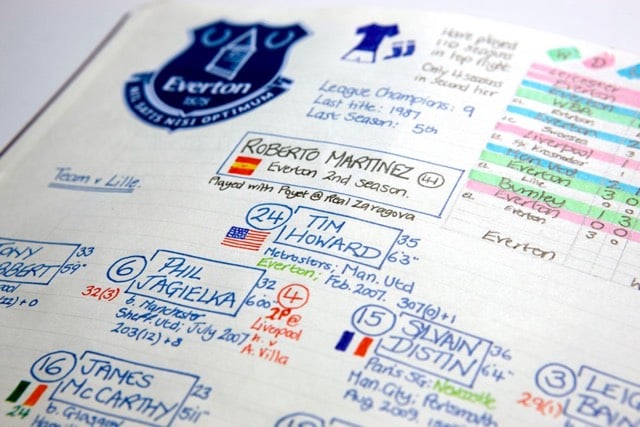 Everton
1878
NIL SATIS NISI OPTIMUM
Have played
110 seasons
in top flight
Only 4 seasons
in second tier
League Champions: 9
Last title: 1987
Last Season: 5th
A
D
Leicester
Everton
WBA
Everton
Everton
Swansea
Liverpool
Everton
FK Krasnodar
Everton
Lille
Burnley
Everton
Everton
ROBERTO MARTINEZ 41
Everton 2nd season.
Played with Poyet @ Real Zaragova
Team v Lille.
24 TIM
HOWARD
35
6'3"
Metrostars; Man. Utd
Everton; Feb. 2007. 307(0)+1
TONY
33
5'9"
6 PHIL
JAGIELKA
32
6'00"
32(3)
b. Manchester
Sheff. Utd; July 2007
203(12)+8
4
2P@
Liverpool
h. v
A. Villa
15 SYLVAIN
DISTIN
36
6'4"
Paris SG; Newcastle
Man City; Portsmouth
Aug 2009.
3
29(1)
16 JAMES
McCARTHY
23
5'11"
24
b. Glasgow